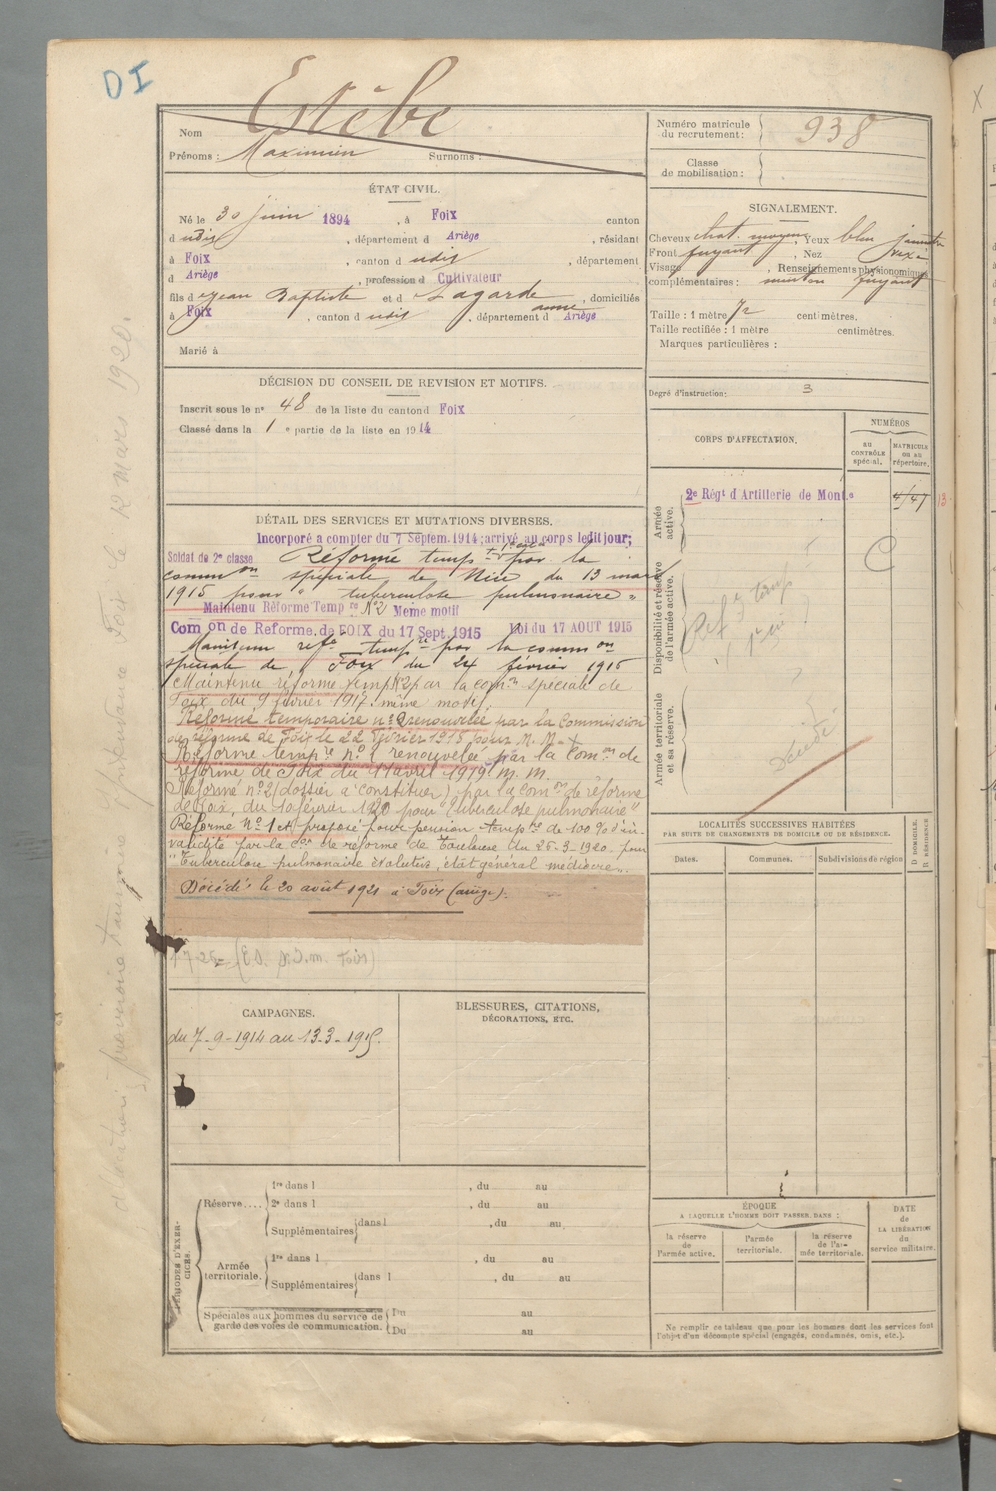 DI
Nom Estèbe
Prénoms : Maximien Surnoms :
Numéro matricule du recrutement : 938
Classe de mobilisation :
ÉTAT CIVIL.
Né le 30 juin 1894, à Foix canton
d udit, département d Ariège, résidant
à Foix, canton d udit, département
d Ariège, profession d Cultivateur
fils d Jean Baptiste et d Lagarde anne, domiciliés
à Foix, canton d udit, département d Ariège
Marié à
SIGNALEMENT.
Cheveux chat. moyens, Yeux bleu
Front fuyant, Nez
Visage Renseignements physionomiques
complémentaires : menton fuyant
Taille : 1 mètre 72 centimètres.
Taille rectifiée : 1 mètre centimètres.
Marques particulières :
Degré d'instruction: 3
DÉCISION DU CONSEIL DE REVISION ET MOTIFS.
Inscrit sous le n° 48 de la liste du canton d Foix
Classé dans la 1 e partie de la liste en 1914
CORPS D'AFFECTATION.
NUMÉROS
au CONTRÔLE spécial.
MATRICULE ou au répertoire.
Armée active.
2e Régt d Artillerie de Mont.e
13
Disponibilité et réserve de l'armée active.
C
Réf e temp
Armée territoriale et sa réserve.
Décédé
DÉTAIL DES SERVICES ET MUTATIONS DIVERSES.
Incorporé a compter du 7 Septem. 1914; arrivé au corps ledit jour;
Soldat de 2e classe Réformé temp re par la
comm on spéciale de Nice du 13 mars
1915 pour " tuberculose pulmonaire "
Maintenu Réformé Temp re N°2 Meme motif
Com on de Reforme, de FOIX du 17 Sept. 1915 Loi du 17 AOUT 1915
Maintenu réfé temp re par la comm on
spéciale de Foix du 24 février 1916
Maintenu réformé temp N°2 par la com on spéciale de
Foix du 9 février 1917 même motif
Réformé temporaire n° 2 renouvelée par la Commission
de réforme de Foix le 22 février 1918 pour M. M.
Réforme temp re n° 1 renouvelée par la Com on de
réforme de Foix du 11 avril 1919 M. M.
Réformé n° 2 (dossier a constituer) par la Com on de réforme
de Foix, du 10 février 1920 pour "Tuberculose pulmonaire"
Réformé N° 1 et proposé pour pension temp re de 100 % d'in-
validité par la C on de réforme de Toulouse du 25-3-1920 pour
"Tuberculose pulmonaire évolutive, état général médiocre".
Décédé le 20 août 1921 à Foix (ariège).
LOCALITÉS SUCCESSIVES HABITÉES
PAR SUITE DE CHANGEMENTS DE DOMICILE OU DE RÉSIDENCE.
D DOMICILE.
R RÉSIDENCE
Dates. Communes. Subdivisions de région
CAMPAGNES.
du 7-9-1914 au 13-3-1915.
BLESSURES, CITATIONS,
DÉCORATIONS, ETC.
PÉRIODES D'EXERCICES.
Réserve.... 1re dans l , du au
2e dans l , du au
Supplémentaires dans l , du au
Armée territoriale. 1re dans l , du au
Supplémentaires dans l , du au
Spéciales aux hommes du service de garde des voies de communication. Du au
Du au
ÉPOQUE
A LAQUELLE L'HOMME DOIT PASSER DANS :
la réserve de l'armée active.
l'armée territoriale.
la réserve de l'armée territoriale.
DATE de LA LIBÉRATION du service militaire.
Ne remplir ce tableau que pour les hommes dont les services font
l'objet d'un décompte spécial (engagés, condamnés, omis, etc.).